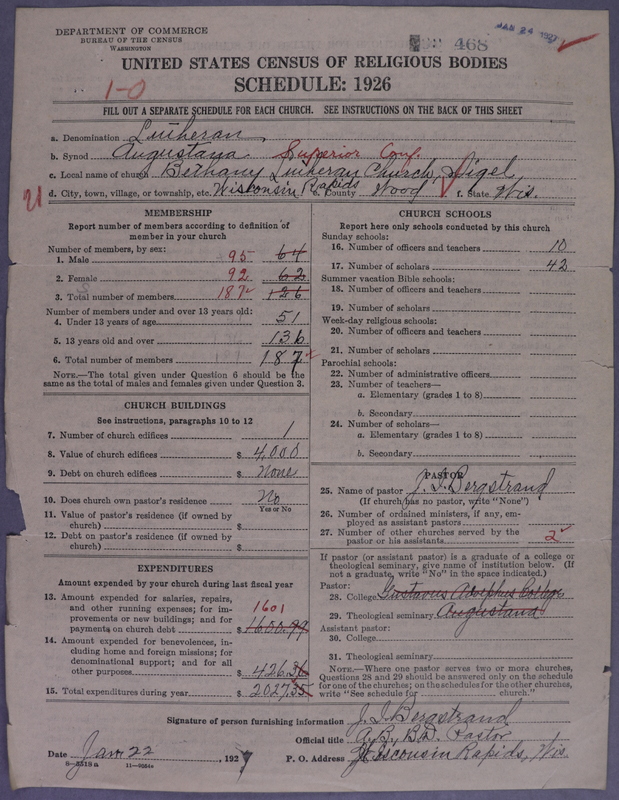 DEPARTMENT OF COMMERCE
BUREAU OF THE CENSUS
WASHINGTON
468
JAN 24 1927
UNITED STATES CENSUS OF RELIGIOUS BODIES
SCHEDULE: 1926
1-0
FILL OUT A SEPARATE SCHEDULE FOR EACH CHURCH. SEE INSTRUCTIONS ON THE BACK OF THIS SHEET
a. Denomination Lutheran
b. Synod Augustana Superior Conf.
c. Local name of church Bethany Lutheran Church, Sigel,
d. City, town, village, or township, etc. Wisconsin Rapids e. County Wood f. State Wis.
MEMBERSHIP
Report number of members according to definition of member in your church
Number of members, by sex:
1. Male 95 64
2. Female 92 62
3. Total number of members 187 126
Number of members under and over 13 years old:
4. Under 13 years of age 51
5. 13 years old and over 136
6. Total number of members 187
NOTE.—The total given under Question 6 should be the same as the total of males and females given under Question 3.
CHURCH BUILDINGS
See instructions, paragraphs 10 to 12
7. Number of church edifices 1
8. Value of church edifices $ 4,000
9. Debt on church edifices $ None
10. Does church own pastor's residence No
Yes or No
11. Value of pastor's residence (if owned by church) $
12. Debt on pastor's residence (if owned by church) $
EXPENDITURES
Amount expended by your church during last fiscal year
13. Amount expended for salaries, repairs, and other running expenses; for improvements or new buildings; and for payments on church debt 1601 $ 1600.99
14. Amount expended for benevolences, including home and foreign missions; for denominational support; and for all other purposes $ 426.36
15. Total expenditures during year $ 2027.35
CHURCH SCHOOLS
Report here only schools conducted by this church
Sunday schools:
16. Number of officers and teachers 10
17. Number of scholars 42
Summer vacation Bible schools:
18. Number of officers and teachers
19. Number of scholars
Week-day religious schools:
20. Number of officers and teachers
21. Number of scholars
Parochial schools:
22. Number of administrative officers
23. Number of teachers—
a. Elementary (grades 1 to 8)
b. Secondary
24. Number of scholars—
a. Elementary (grades 1 to 8)
b. Secondary
PASTOR
25. Name of pastor J. I. Bergstrand
(If church has no pastor, write "None")
26. Number of ordained ministers, if any, employed as assistant pastors
27. Number of other churches served by the pastor or his assistants 2
If pastor (or assistant pastor) is a graduate of a college or theological seminary, give name of institution below. (If not a graduate, write "No" in the space indicated.)
Pastor:
28. College Gustavus Adolphus College
29. Theological seminary Augustana
Assistant pastor:
30. College
31. Theological seminary
NOTE.—Where one pastor serves two or more churches, Questions 28 and 29 should be answered only on the schedule for one of the churches; on the schedules for the other churches, write "See schedule for church."
Signature of person furnishing information J. I. Bergstrand
Official title A.B., B.D. Pastor
Date Jan 22, 1927 P. O. Address Wisconsin Rapids, Wis.
8—5518a 11—9864a